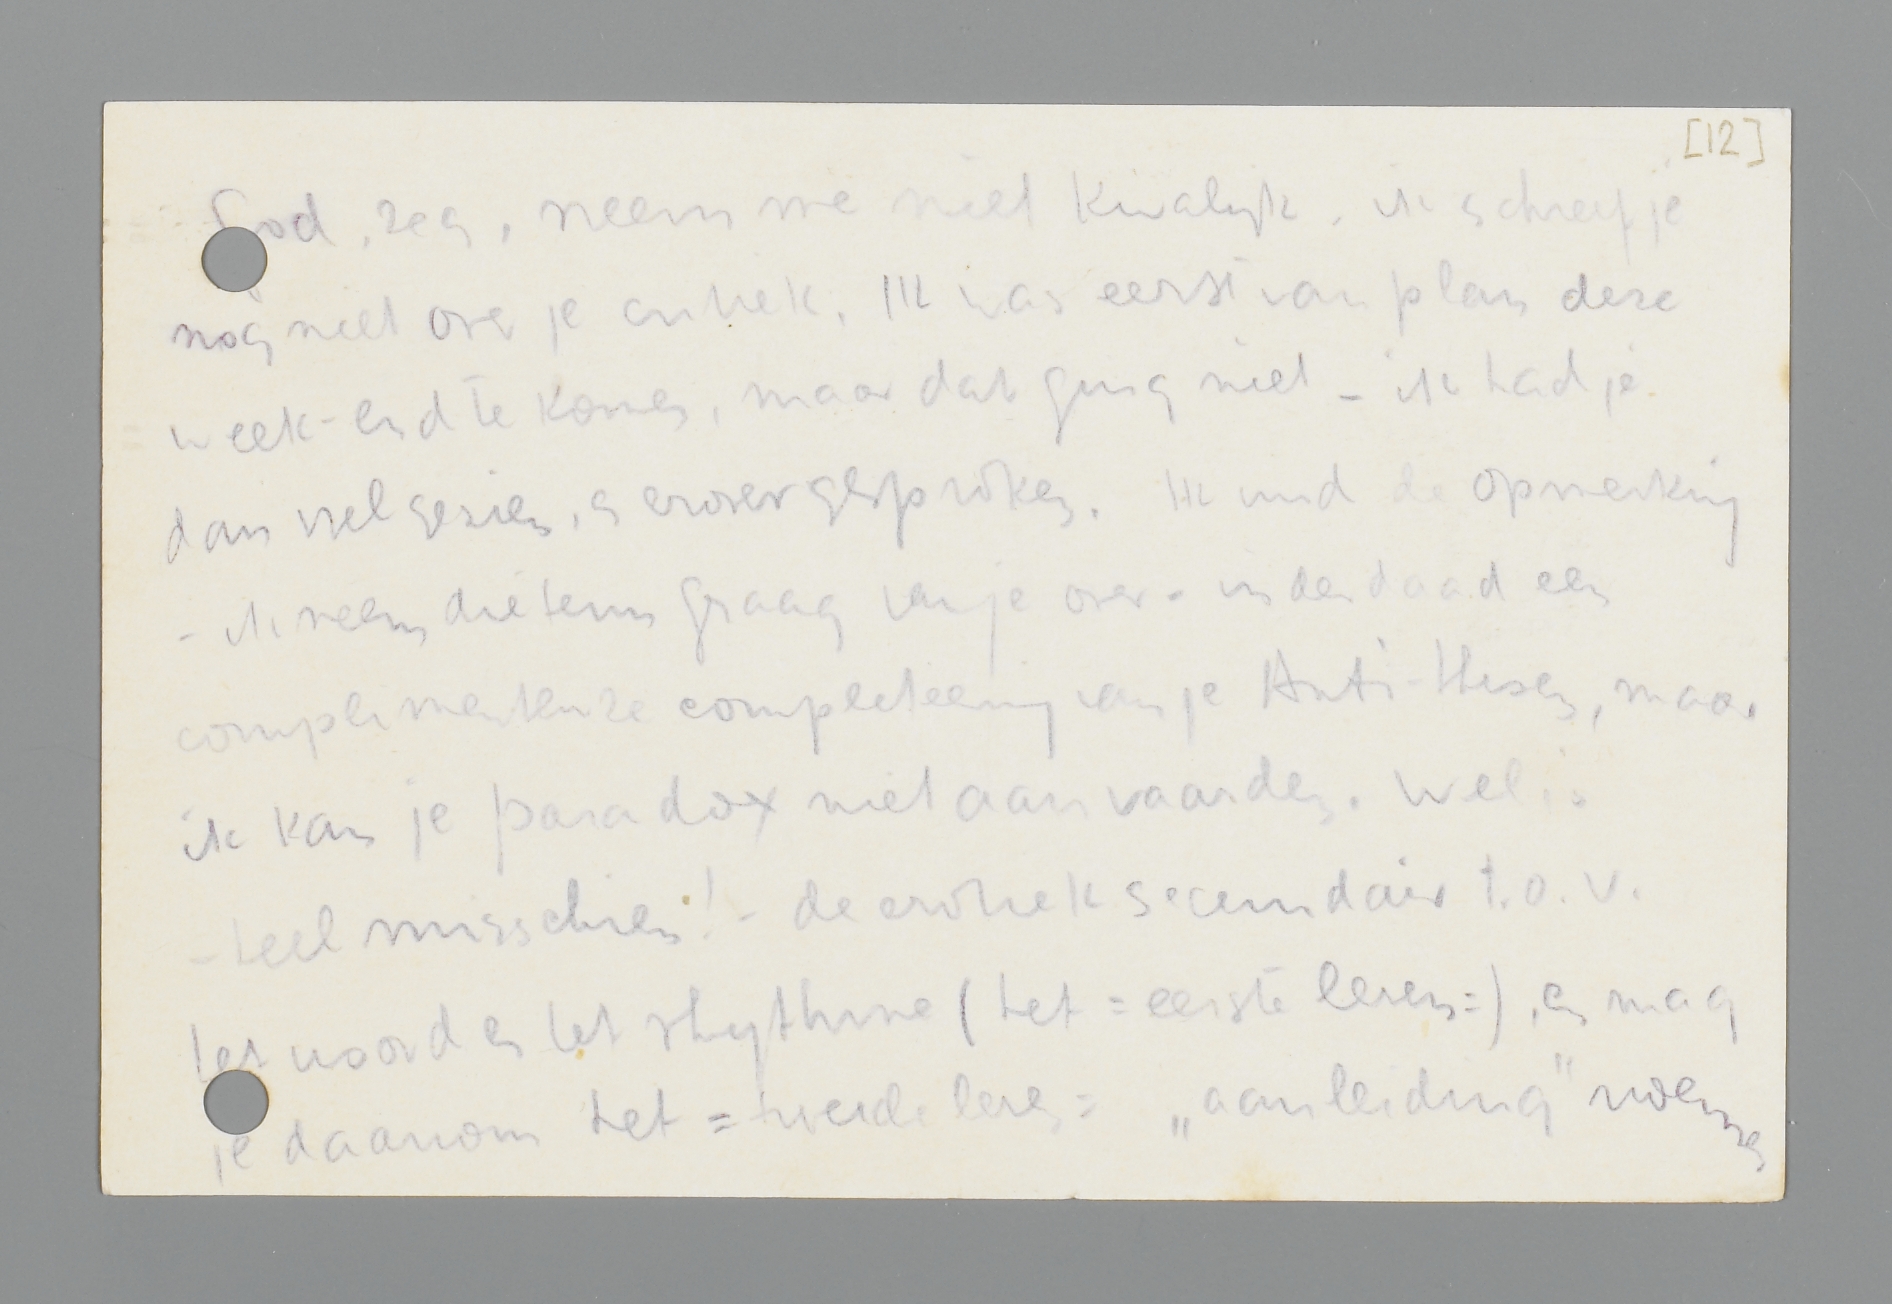 [12]
God, zeg, neem me niet kwalijk, ik schreef je
nòg niet over je critiek. Ik was eerst van plan deze
week-end te komen, maar dat ging niet – ik had je
dan wel gezien, en erover gesproken. Ik vind de opmerking
– ik neem die term graag van je over – inderdaad een
complimenteuze completeering van je Anti-thesen, maar
ik kan je paradox niet aanvaarden. Wel is
– heel misschien! – de erotiek secundair t.o.v.
het woord en het rhythme (het = eerste leven =), en mag
je daarom het = tweede leven = „aanleiding" noemen